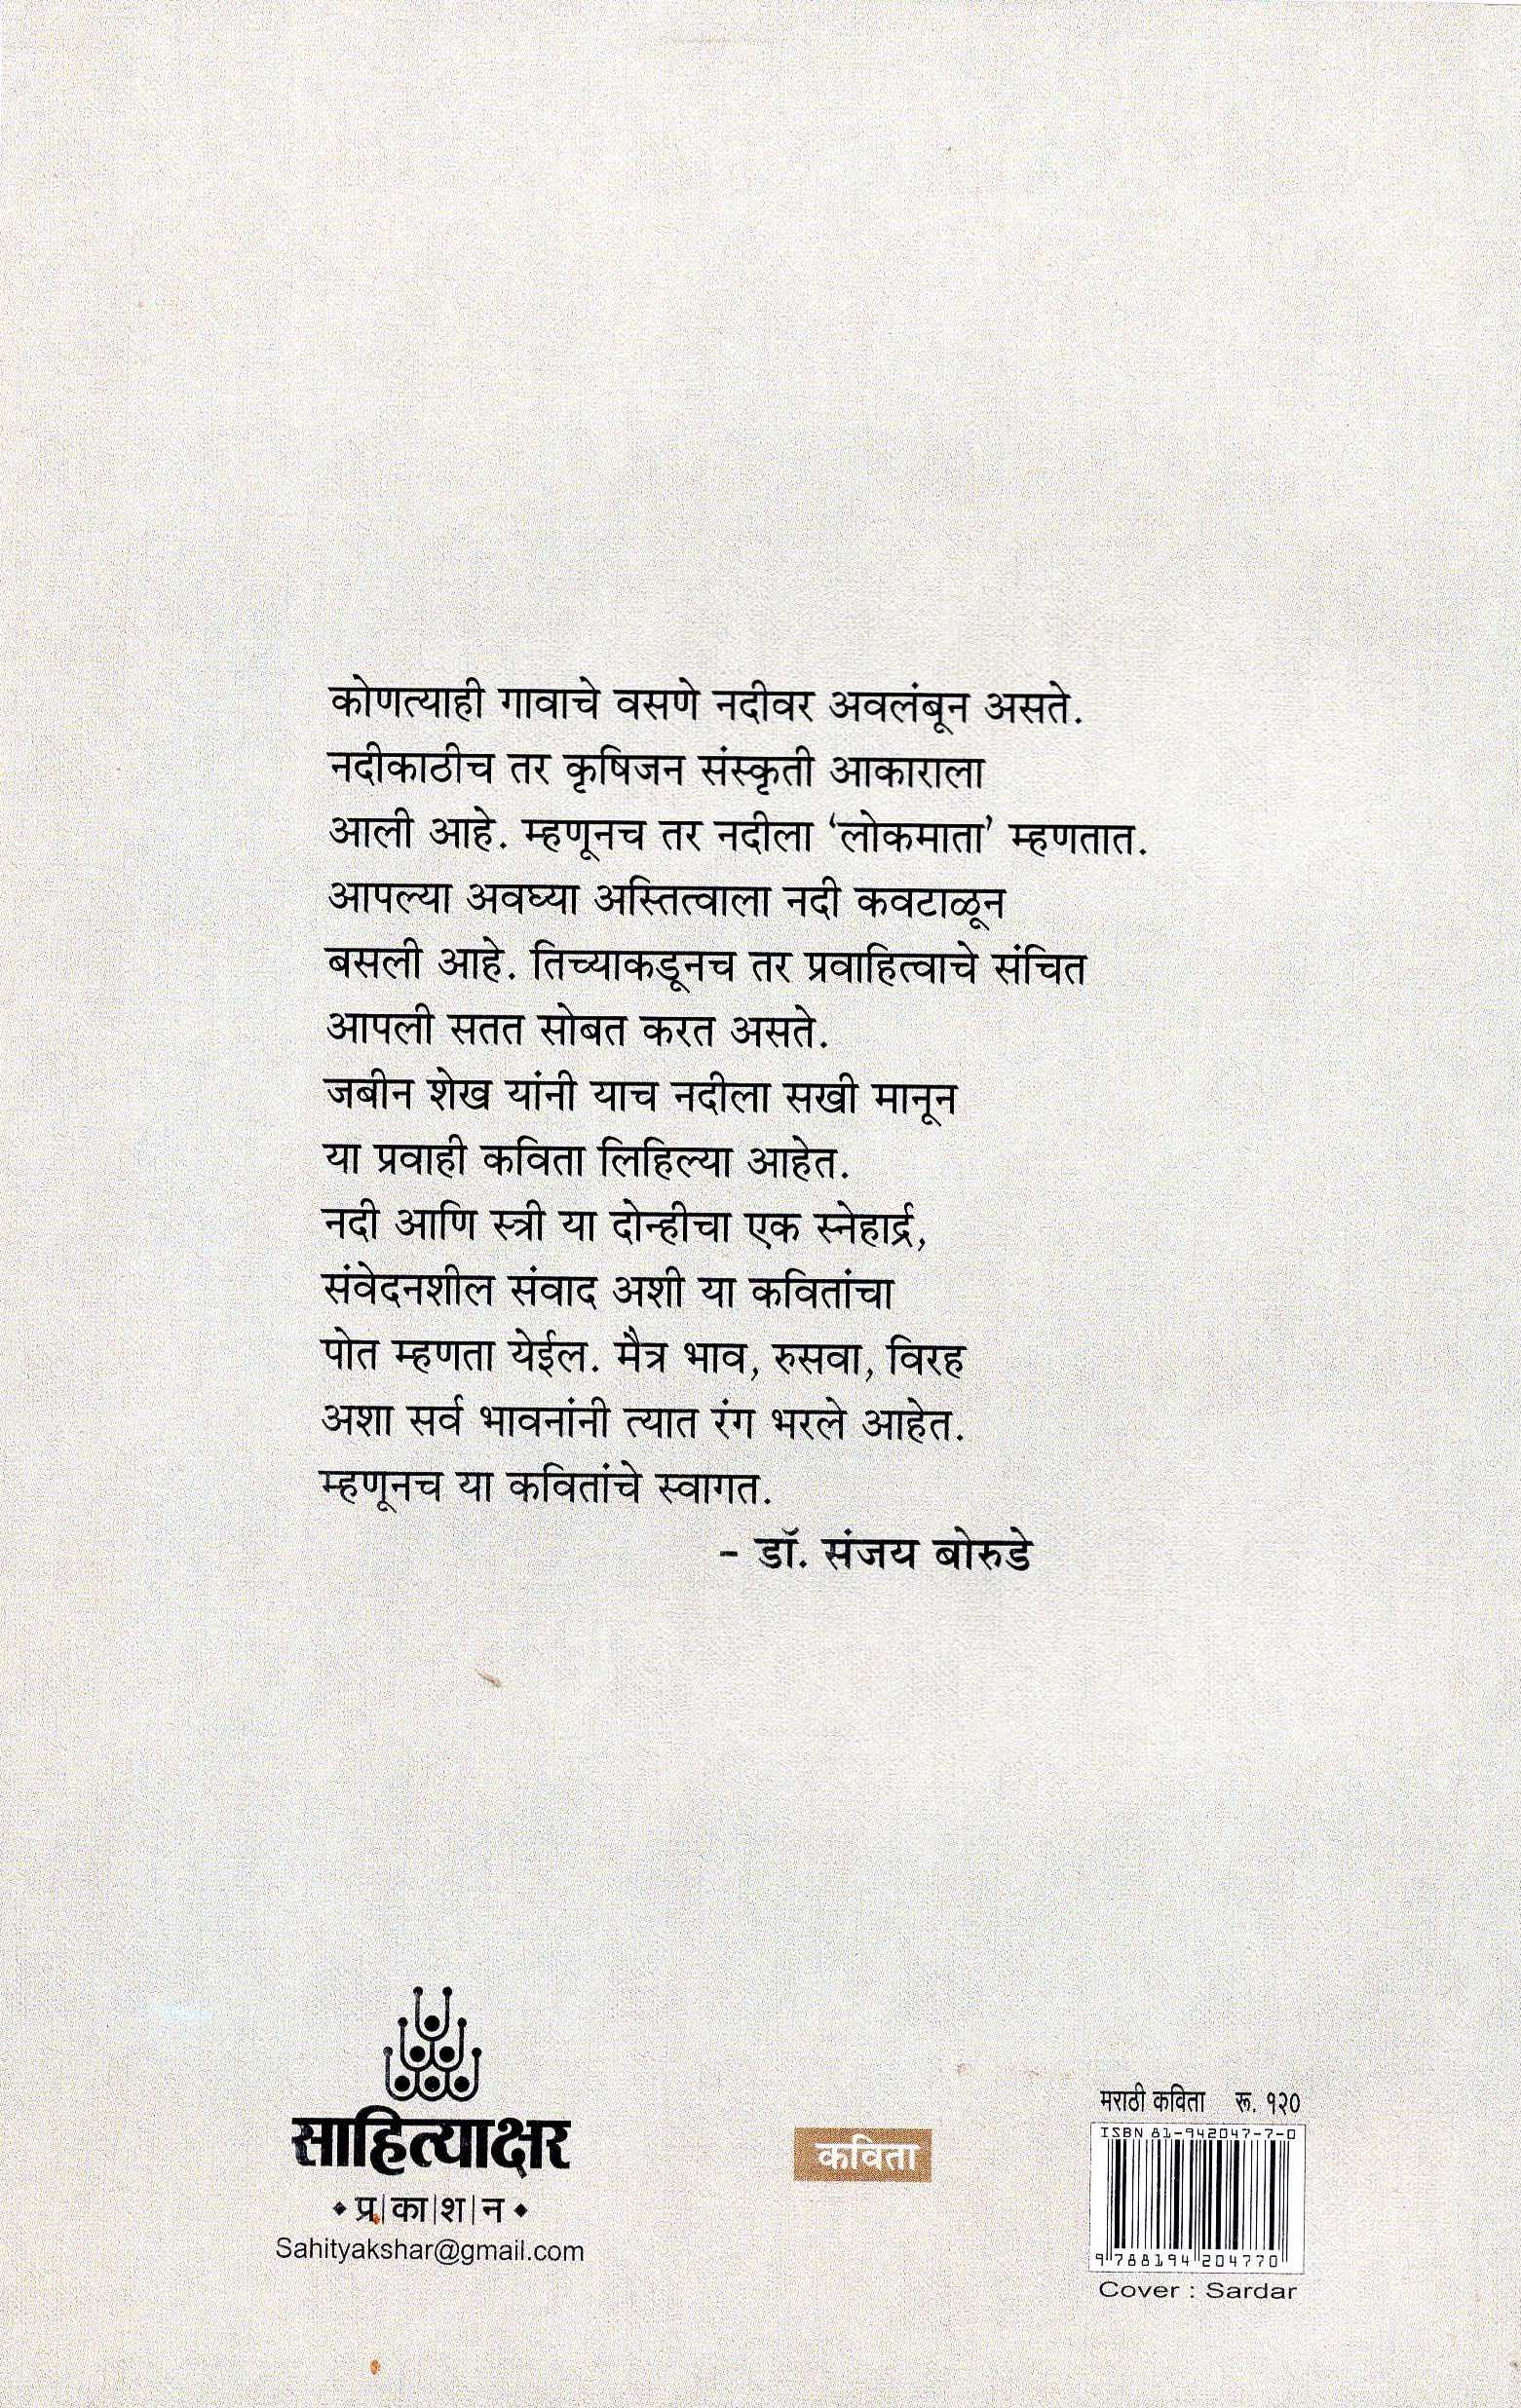 कोणत्याही गावाचे वसणे नदीवर अवलंबून असते.
नदीकाठीच तर कृषिजन संस्कृती आकाराला
आली आहे. म्हणूनच तर नदीला ‘लोकमाता’ म्हणतात.
आपल्या अवघ्या अस्तित्वाला नदी कवटाळून
बसली आहे. तिच्याकडूनच तर प्रवाहित्वाचे संचित
आपली सतत सोबत करत असते.
जबीन शेख यांनी याच नदीला सखी मानून
या प्रवाही कविता लिहिल्या आहेत.
नदी आणि स्त्री या दोन्हीचा एक स्नेहार्द्र,
संवेदनशील संवाद अशी या कवितांचा
पोत म्हणता येईल. मैत्र भाव, रुसवा, विरह
अशा सर्व भावनांनी त्यात रंग भरले आहेत.
म्हणूनच या कवितांचे स्वागत.
- डॉ. संजय बोरुडे
साहित्याक्षर
प्र|का|श|न
Sahityakshar@gmail.com
कविता
मराठी कविता रू. १२०
ISBN 81-942047-7-0
9 788194 204770
Cover : Sardar